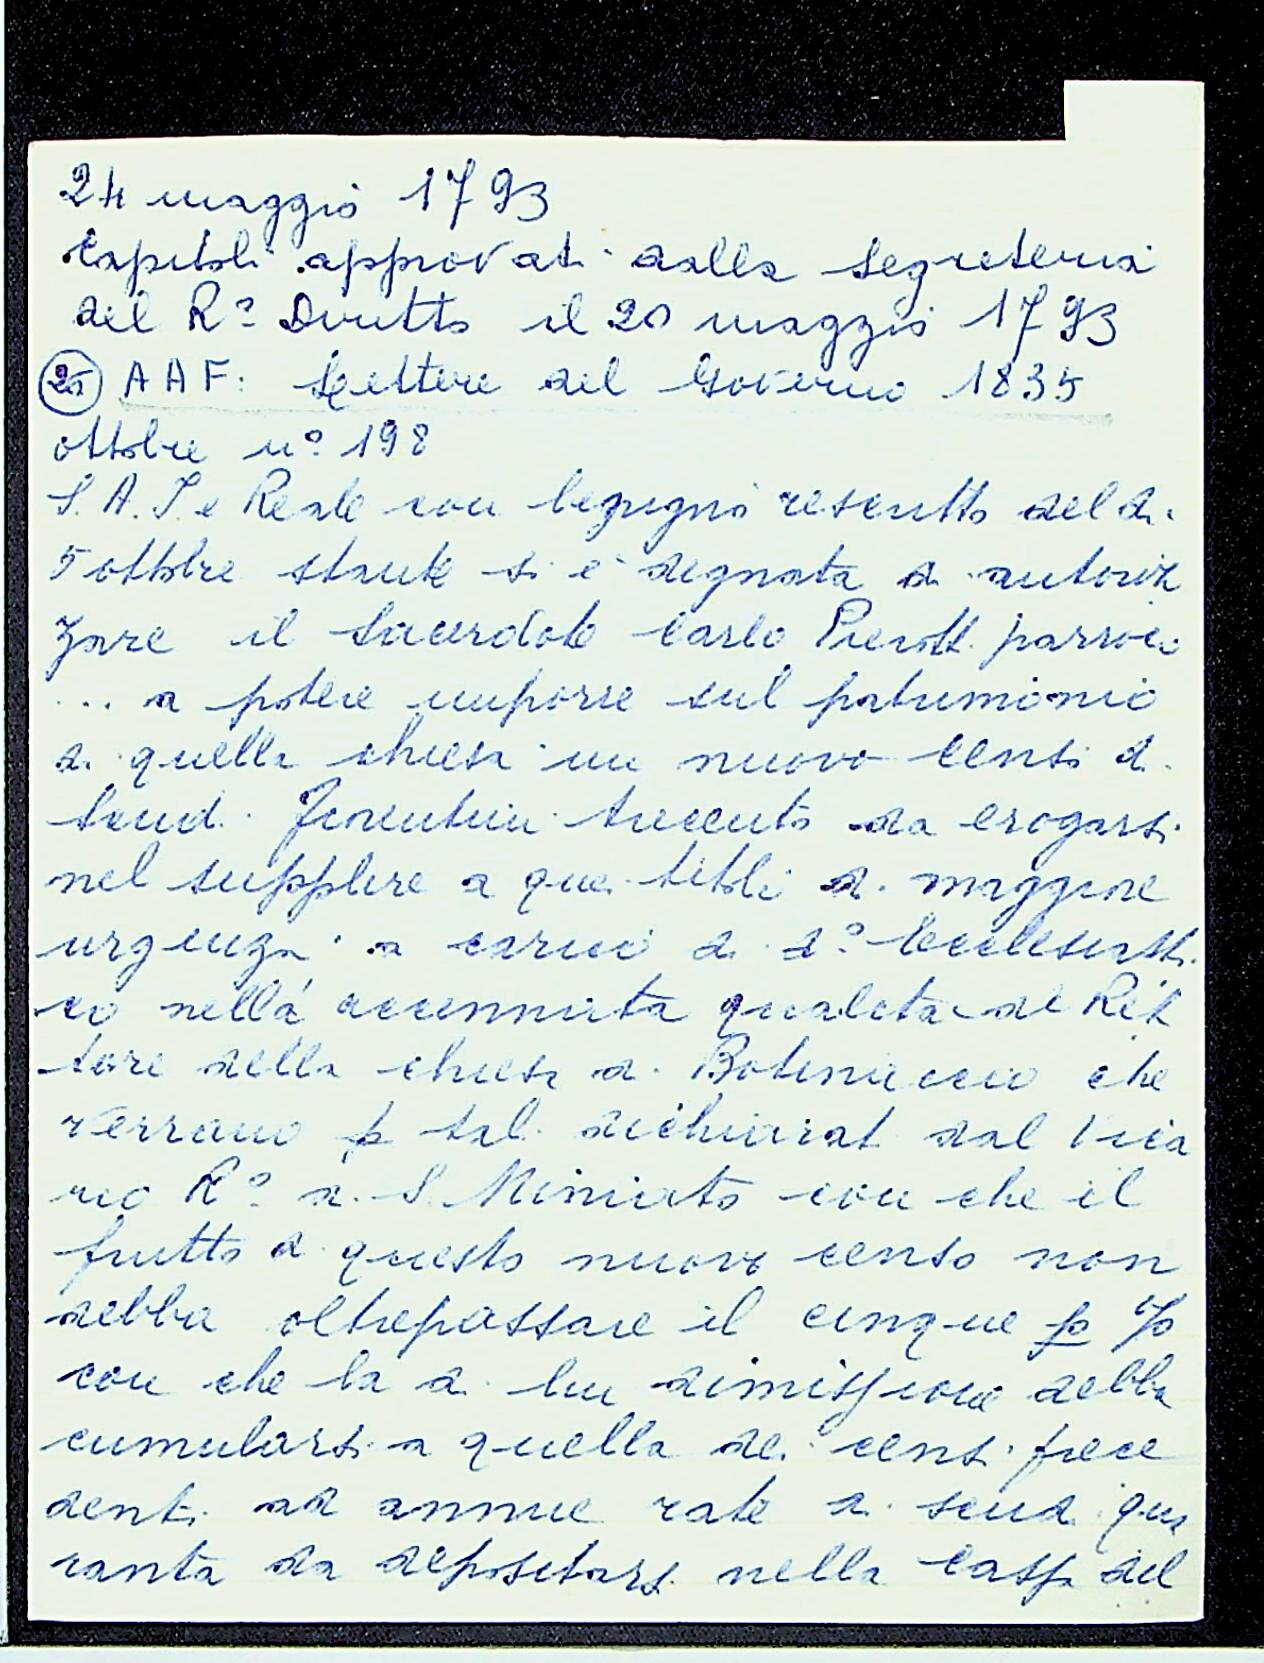 24 maggio 1793
Capitoli approvati dalla Segreteria
del R.° Diritto il 20 maggio 1793
25 AAF: Lettere del Governo 1835
ottobre n.° 198
S. A. I. e Reale con benigno rescritto del di
5 ottobre stante si è degnata di autoriz
zare il Sacerdote Carlo Pierotti parroco
... a potere imporre sul patrimonio
di quella chiesa un nuovo censo di
scudi fiorentini trecento da erogarsi
nel supplire a quei titoli di maggiore
urgenza a carico di d.° Ecclesiasti
co nella accennata qualità di Ret
tore della chiesa di Botinaccio che
verrano p tali dichiarati dal Vica
rio R.° di S. Miniato con che il
frutto di questo nuovo censo non
debba oltrepassare il cinque p %
con che la di lui dimissione debba
cumularsi a quella dei censi prece
denti ad annue rate di scudi qua
ranta da depositarsi nella Cassa del